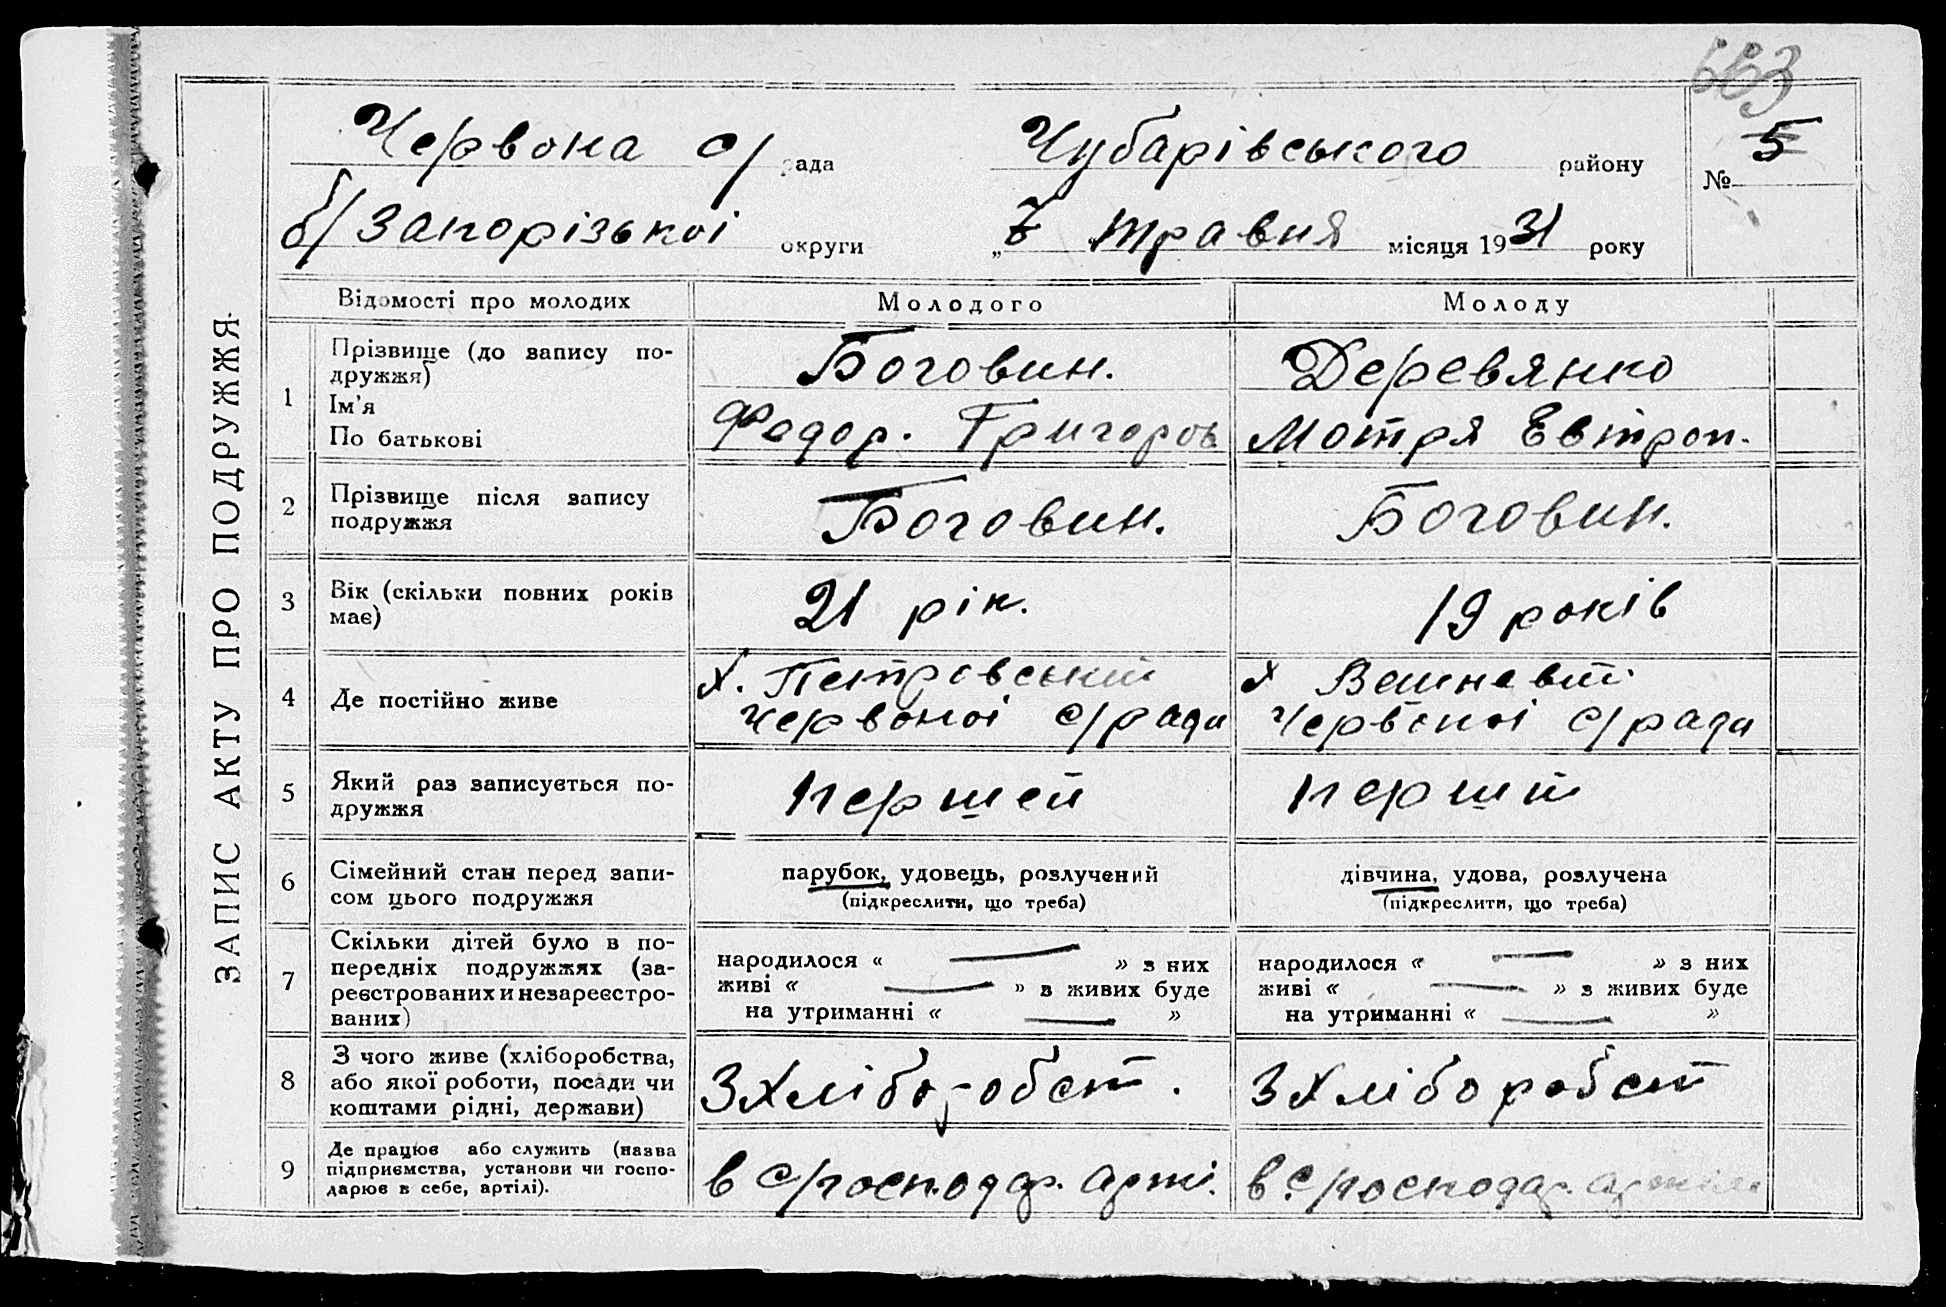 663
Червона с/рада
Чубарівського району
№ 5
б/Запорізької округи
„7 травня місяця 1931 року
ЗАПИС АКТУ ПРО ПОДРУЖЖЯ
Відомості про молодих
Молодого
Молоду
1
Прізвище (до запису по-
дружжя)
Ім'я
По батькові
Боговин.
Федор. Григоров
Деревянко
Мотря Евтроп.
2
Прізвище після запису
подружжя
Боговин.
Боговин.
3
Вік (скільки повних років
має)
21 рік.
19 років
4
Де постійно живе
х. Петровський
Червоної с/ради
х Вешневий
Червоної с/ради
5
Який раз записується по-
дружжя
першей
перший
6
Сімейний стан перед запи-
сом цього подружжя
парубок, удовець, розлучений
(підкреслити, що треба)
дівчина, удова, розлучена
(підкреслити, що треба)
7
Скільки дітей було в по-
передніх подружжях (за-
реєстрованих и незареєстро-
ваних)
народилося « — » з них
живі « — » з живих буде
на утриманні « — »
народилося « — » з них
живі « — » з живих буде
на утриманні « — »
8
З чого живе (хліборобства,
або якої роботи, посади чи
коштами рідні, держави)
З хліборобст.
З хліборобст
9
Де працює або служить (назва
підприємства, установи чи госпо-
дарює в себе, артілі).
в с/господар. арті.
в с/господар. артілі